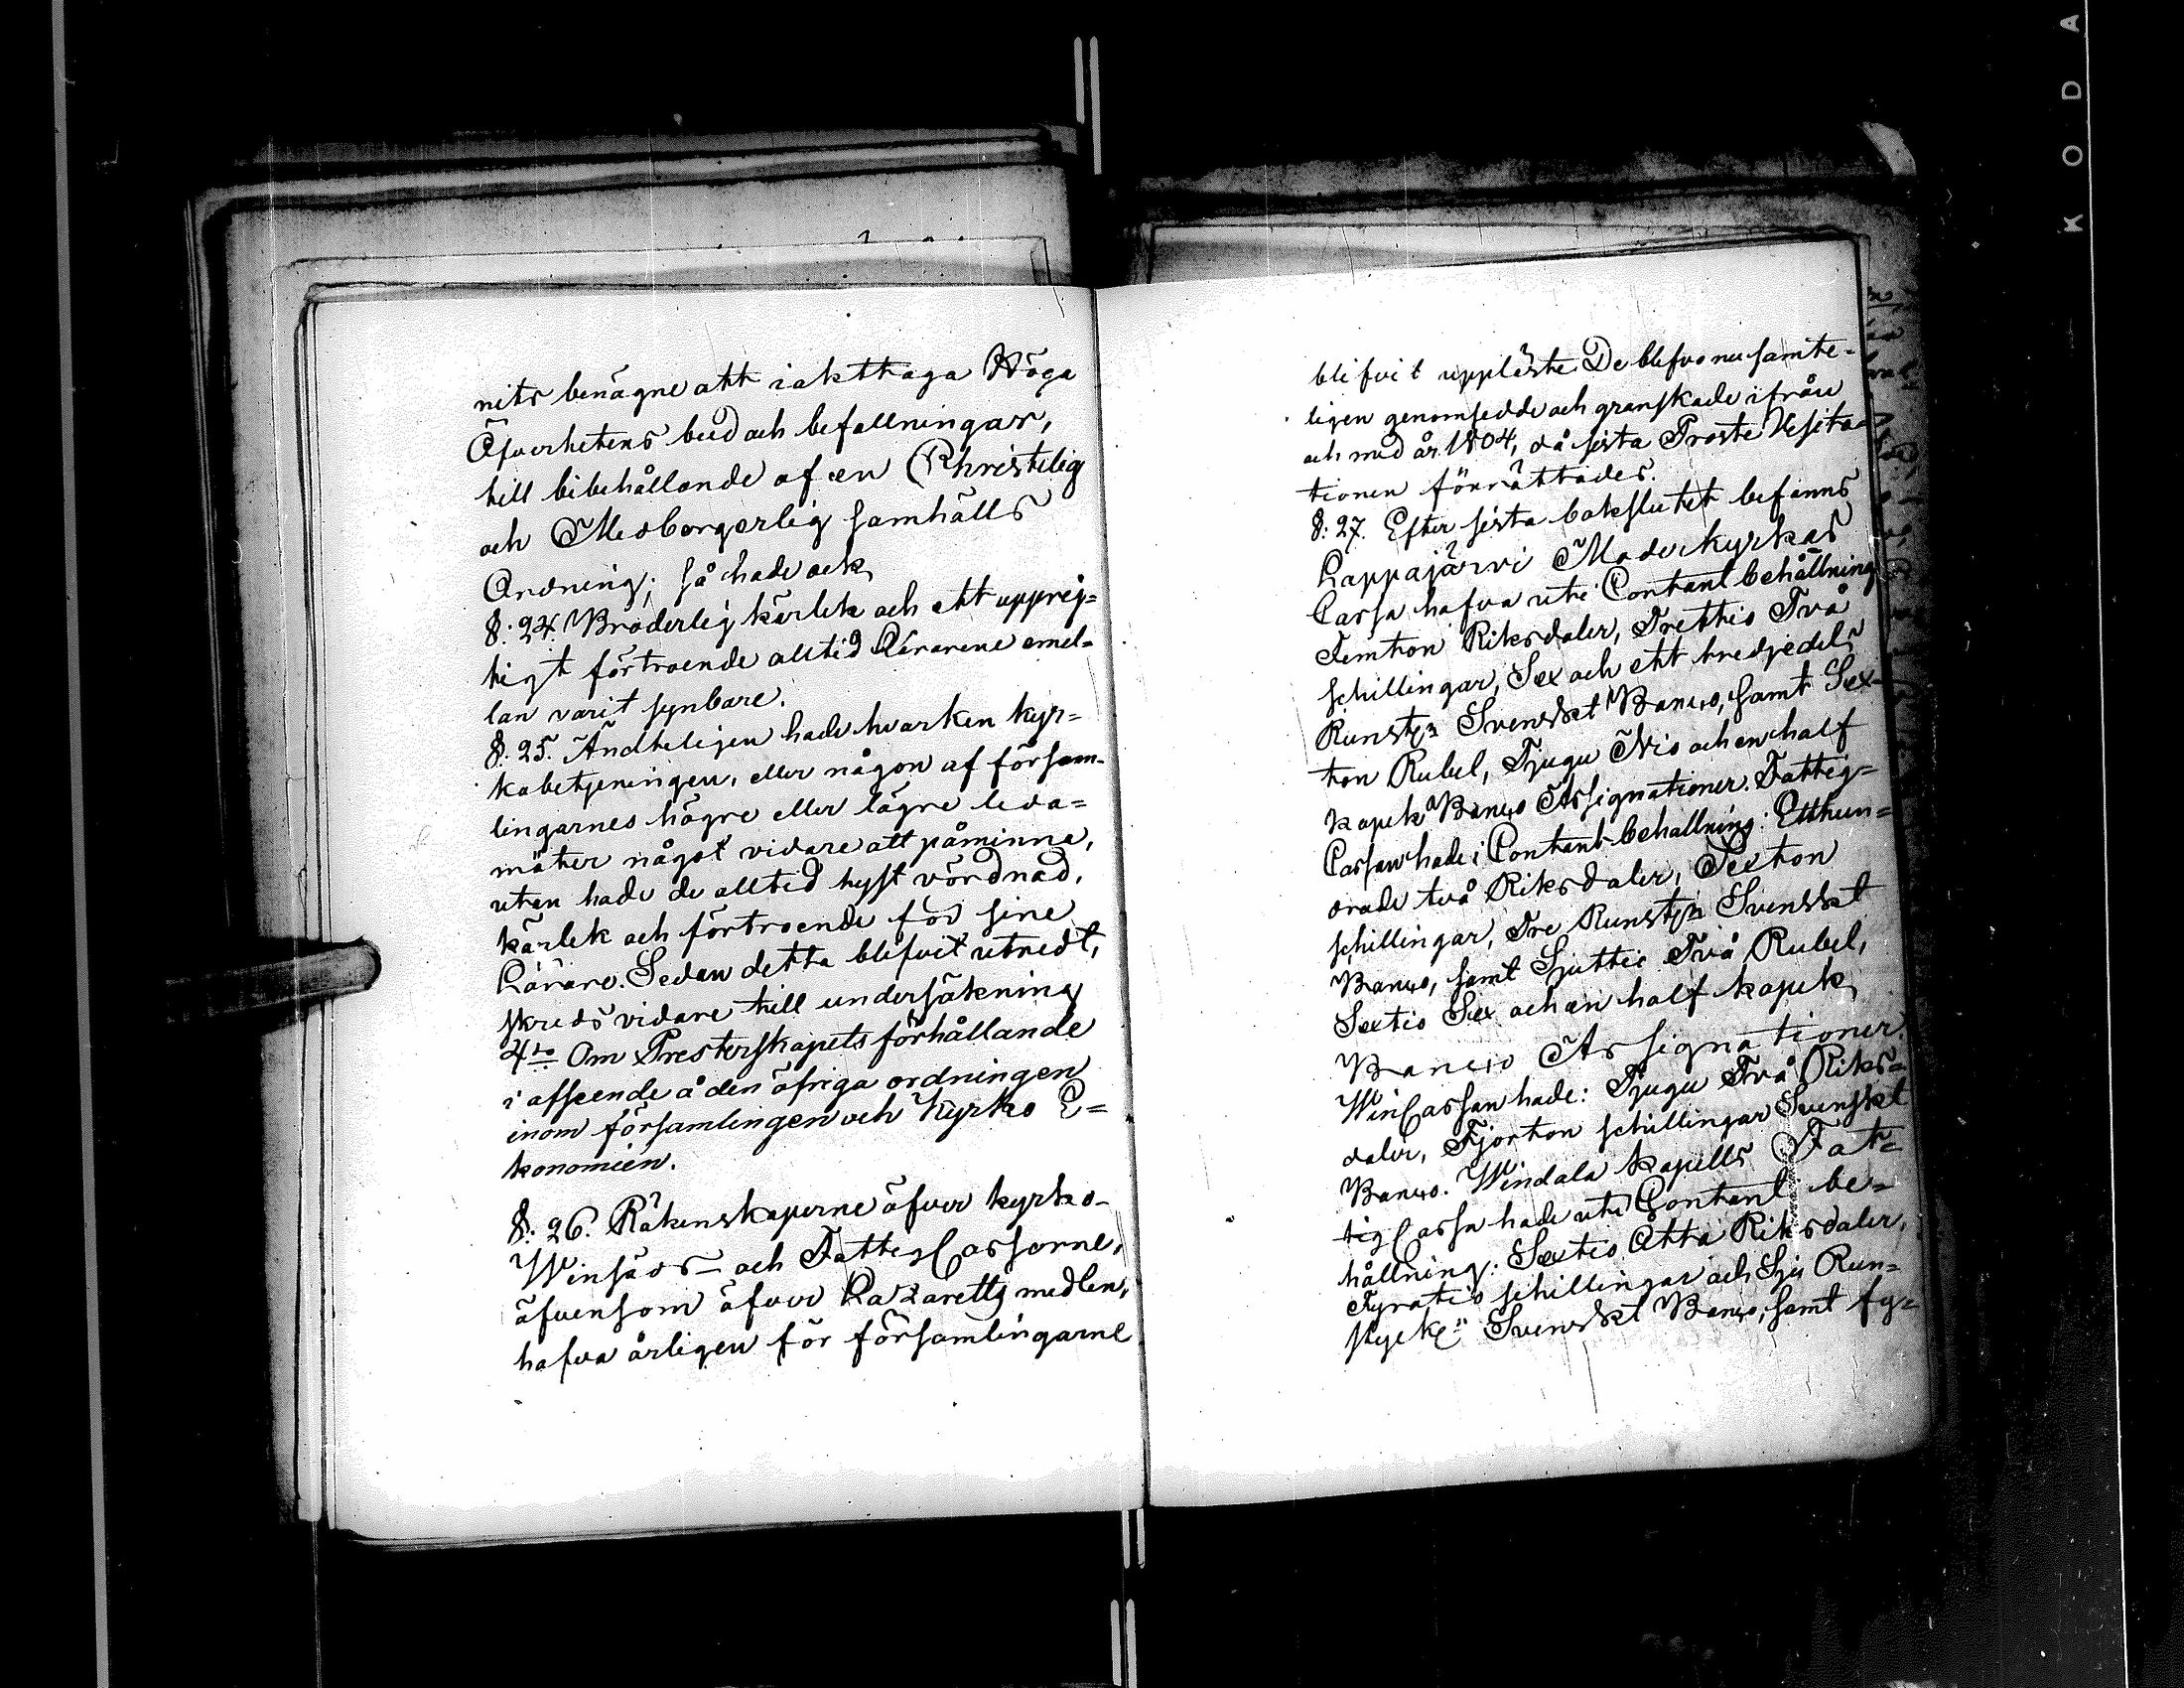 nits benägne att iakttaga Höga
Öfverhetens bud och befallningar,
till bibehållande af en Christelig
och Medborgerlig samhälls
Ordning; så hade ock
§: 24. Broderlig kärlek och ett upprig=
tigt förtroende alltid Lärarene emel=
lan varit synbare.
§: 25. Ändteligen hade hvarken kyr=
kobetjeningen, eller någon af försam-
lingarnes högre eller lägre leda=
möter något vidare att påminna,
utan hade de alltid hyst vördnad,
kärlek och förtroende för sine
Lärare. Sedan detta blifvit utredt,
skreds vidare till undersökning
4to Om Presterskapets förhållande
i afseende å den öfriga ordningen
inom församlingen och Kyrko E=
konomien.
§: 26. Räkenskaperne öfver kyrko-
Winsäds- och FattigCassorne,
äfvensom öfver Lazaretts medlen,
hafva årligen för församlingarne
blifvit uppläste. De blefvo nu samte-
ligen genomsedde och granskade ifrån
och med år 1804, då sista Proste Visita=
tionen förrättades.
§: 27. Efter sista bokslutet befanns
Lappajärvi Moderkyrkas
Cassa hafva uti Contant behållning
Femton Riksdaler, Trettio Två
schillingar, Sex och ett tredjedels
Runstyn Svenskt Banco, samt Sex-
ton Rubel, Tjugu Nio och en half
kopek Banco Assignationer. Fattig=
Cassan hade i Contant behållning: Etthun=
drade två Riksdaler, Sexton
schillingar, Tre Runstyn Svenskt
Banco, samt Sjuttio Två Rubel,
Sextio Sex och en half kopek
Banco Assignationer.
WinCassan hade: Tjugu Två Riks=
daler, Fjorton schillingar Svenskt
Banco. Windala kapells Fat=
tigCassa hade uti Contant be=
hållning: Sextio Åtta Riksdaler,
Fyratio schillingar och Sju Run=
stycken Svenskt Banco, samt fy=
K O D A